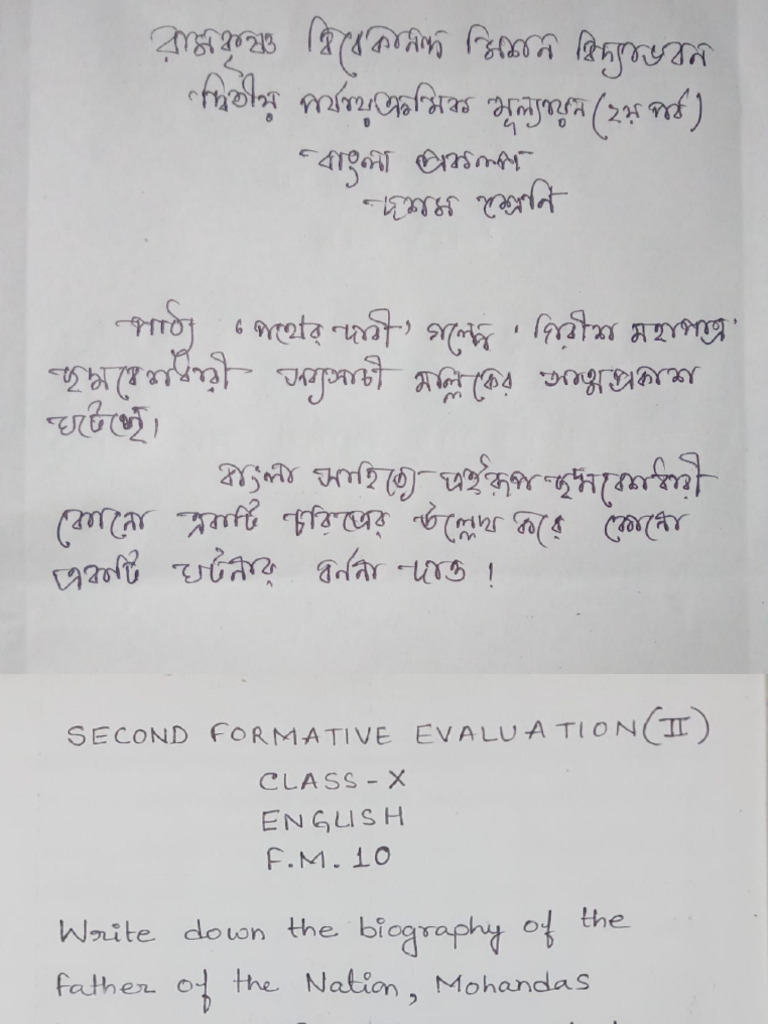 রামকৃষ্ণ বিবেকানন্দ মিশন বিদ্যাভবন
দ্বিতীয় পর্যায়ক্রমিক মূল্যায়ন (২য় পর্ব)
বাংলা প্রকল্প
দশম শ্রেনি
পাঠ্য 'পথের দাবী' গল্পে 'গিরীশ মহাপাত্র'
ছদ্মবেশধারী সব্যসাচী মল্লিকের আত্মপ্রকাশ
ঘটেছে।
বাংলা সাহিত্যে এইরূপ ছদ্মবেশধারী
কোনো একটি চরিত্রের উল্লেখ করে কোনো
একটি ঘটনার বর্ননা দাও।
SECOND FORMATIVE EVALUATION (II)
CLASS - X
ENGLISH
F.M. 10
Write down the biography of the
father of the Nation, Mohandas